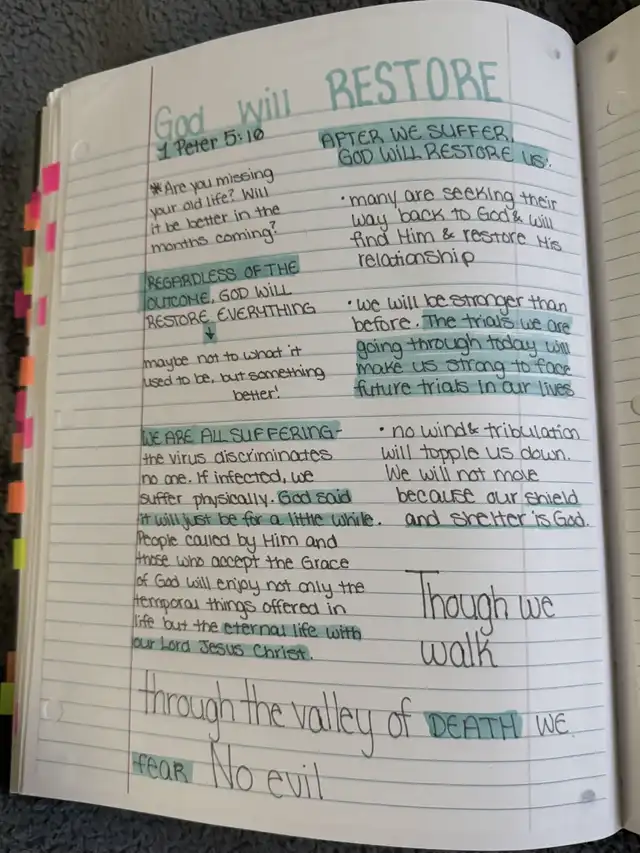 God will RESTORE
1 Peter 5:10
*Are you missing
your old life? Will
it be better in the
months coming?
REGARDLESS OF THE
OUTCOME, GOD WILL
RESTORE EVERYTHING
↓
maybe not to what it
used to be, but something
better!
WE ARE ALL SUFFERING-
the virus discriminates
no one. If infected, we
suffer physically. God said
it will just be for a little while.
People called by Him and
those who accept the Grace
of God will enjoy not only the
temporal things offered in
life but the eternal life with
our Lord Jesus Christ.
AFTER WE SUFFER,
GOD WILL RESTORE US.
•many are seeking their
way back to God & will
find Him & restore His
relationship
•we will be stronger than
before. The trials we are
going through today will
make us strong to face
future trials in our lives
• no wind & tribulation
will topple us down.
We will not move
because our shield
and shelter is God.
Though we
walk
through the valley of DEATH WE
fear No evil